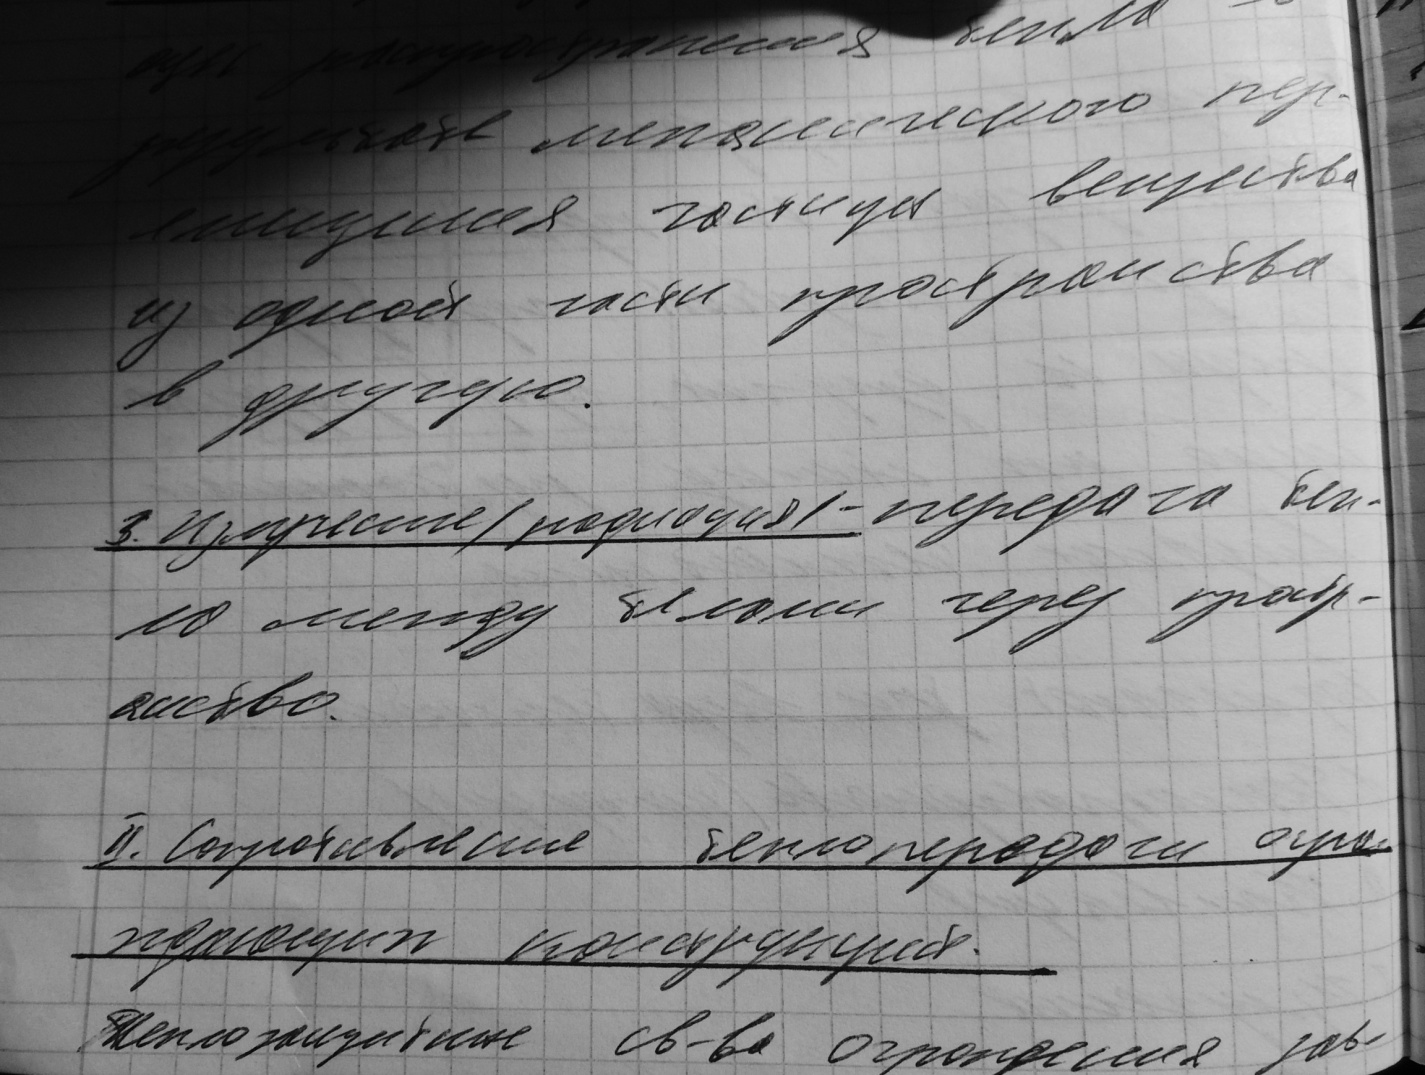 распространения тепла в
результате механического пер-
емещения частицы вещества
из одной части пространства
в другую.
3. Излучение/радиация/-передача теп-
ла между телами через простр-
анство.
II. Сопротивление теплопередачи огра-
ждающих конструкций.
Теплозащитные св-ва ограждения зав-